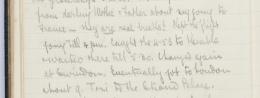 from darling Mother & Father about my going to
France — they are real bricks! Not
going till 4 p.m. Caught the 4.53 to
& waited there till 5.40. Changed again
at Swindon. Eventually got to London
about 9. Taxi to the Strand Palace.